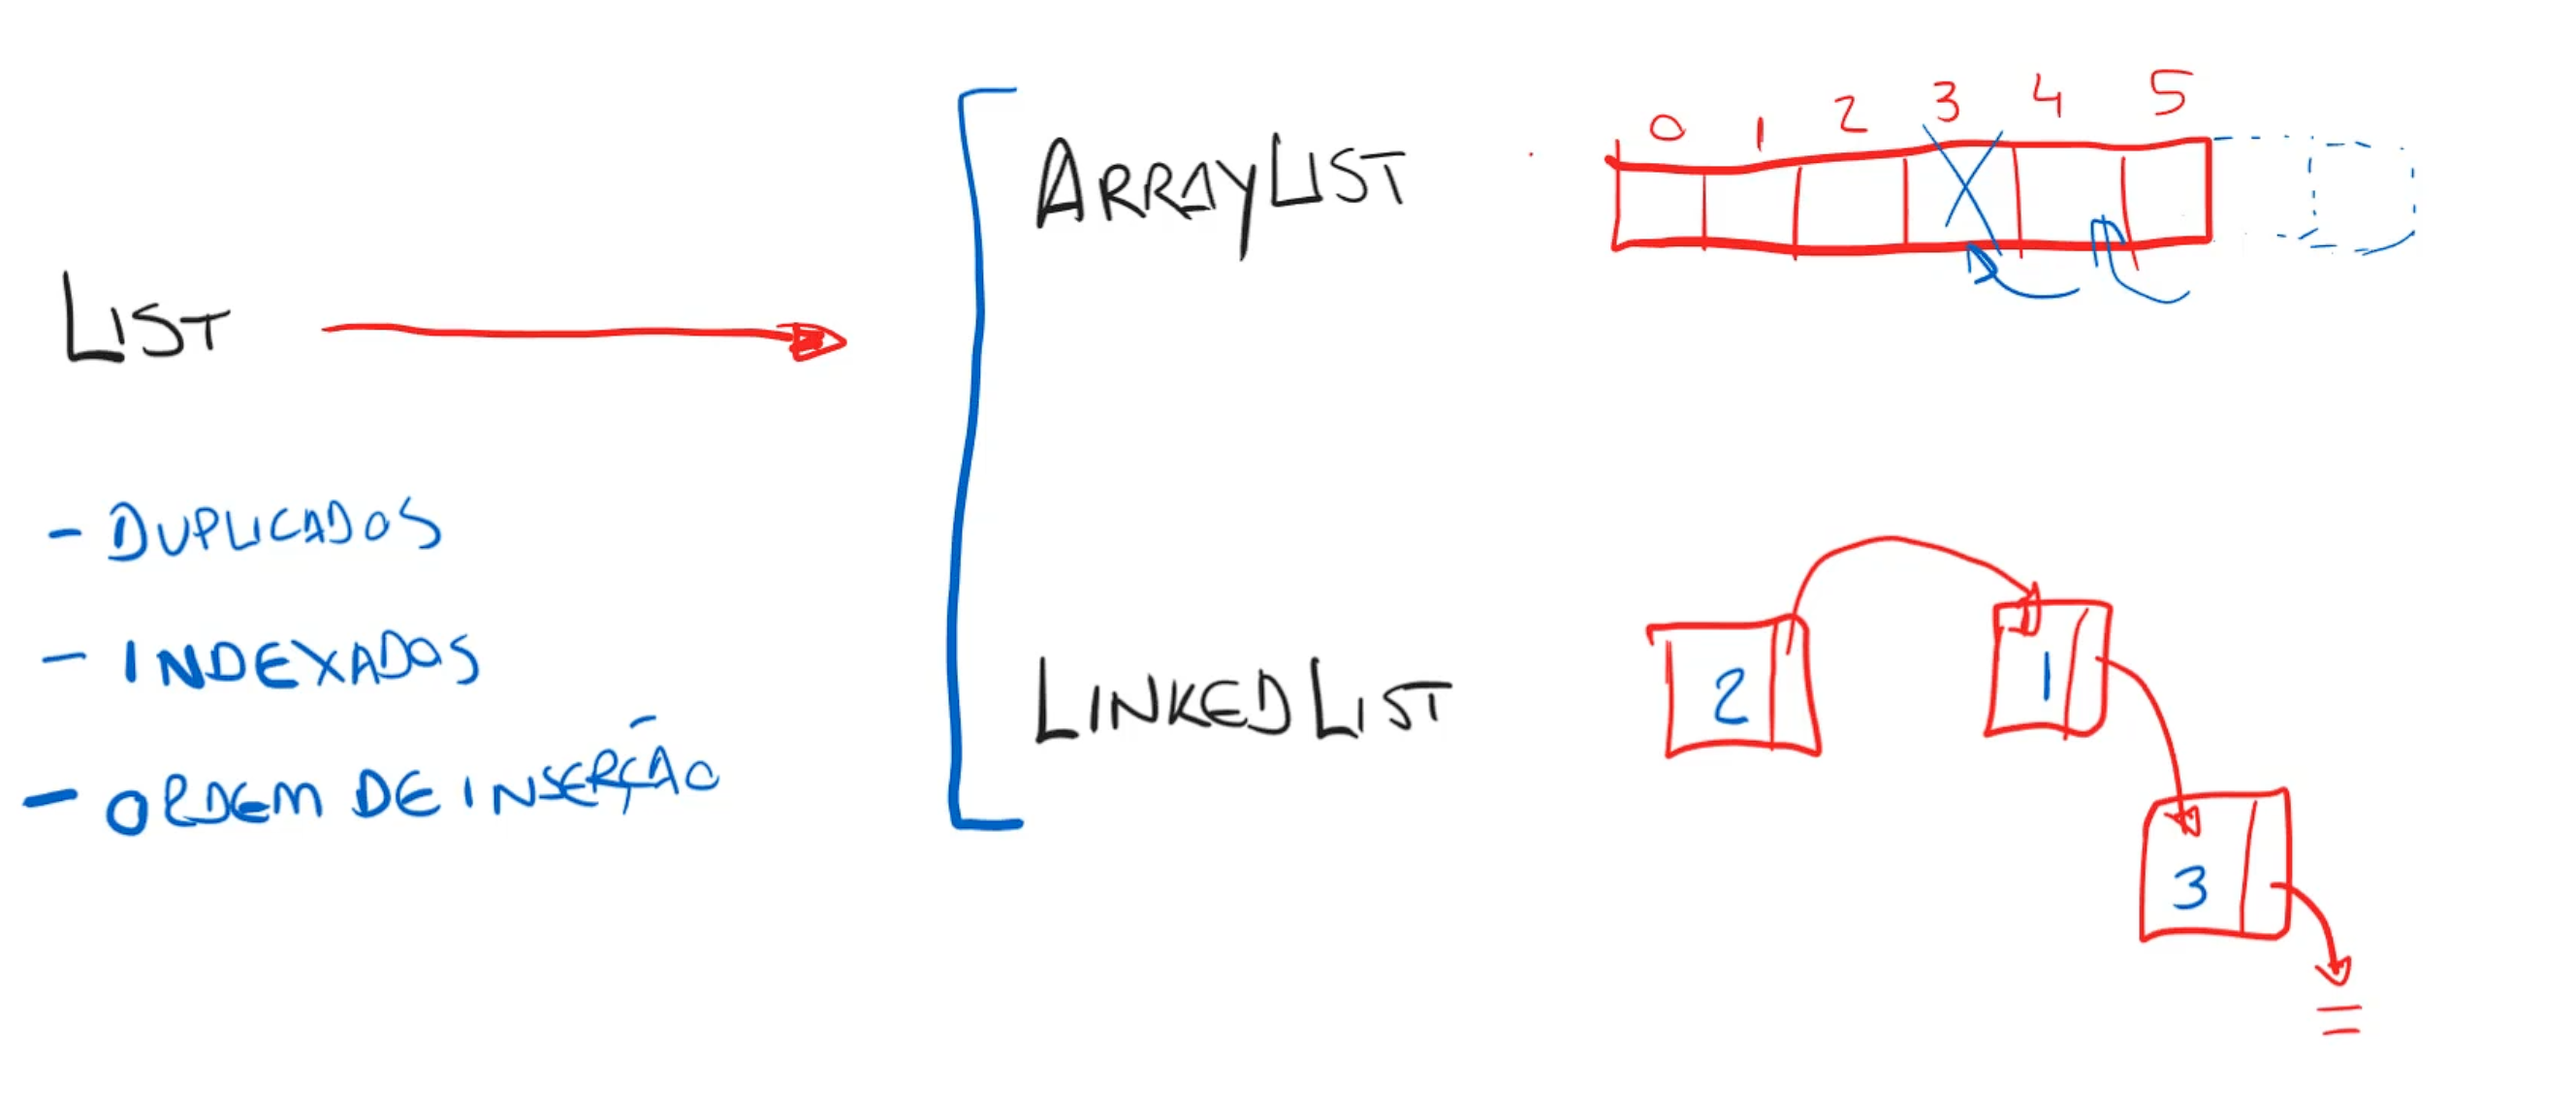 LIST
- DUPLICADOS
- INDEXADOS
- ORDEM DE INSERÇÃO
ARRAYLIST
0 1 2 3 4 5
LINKEDLIST
2
1
3